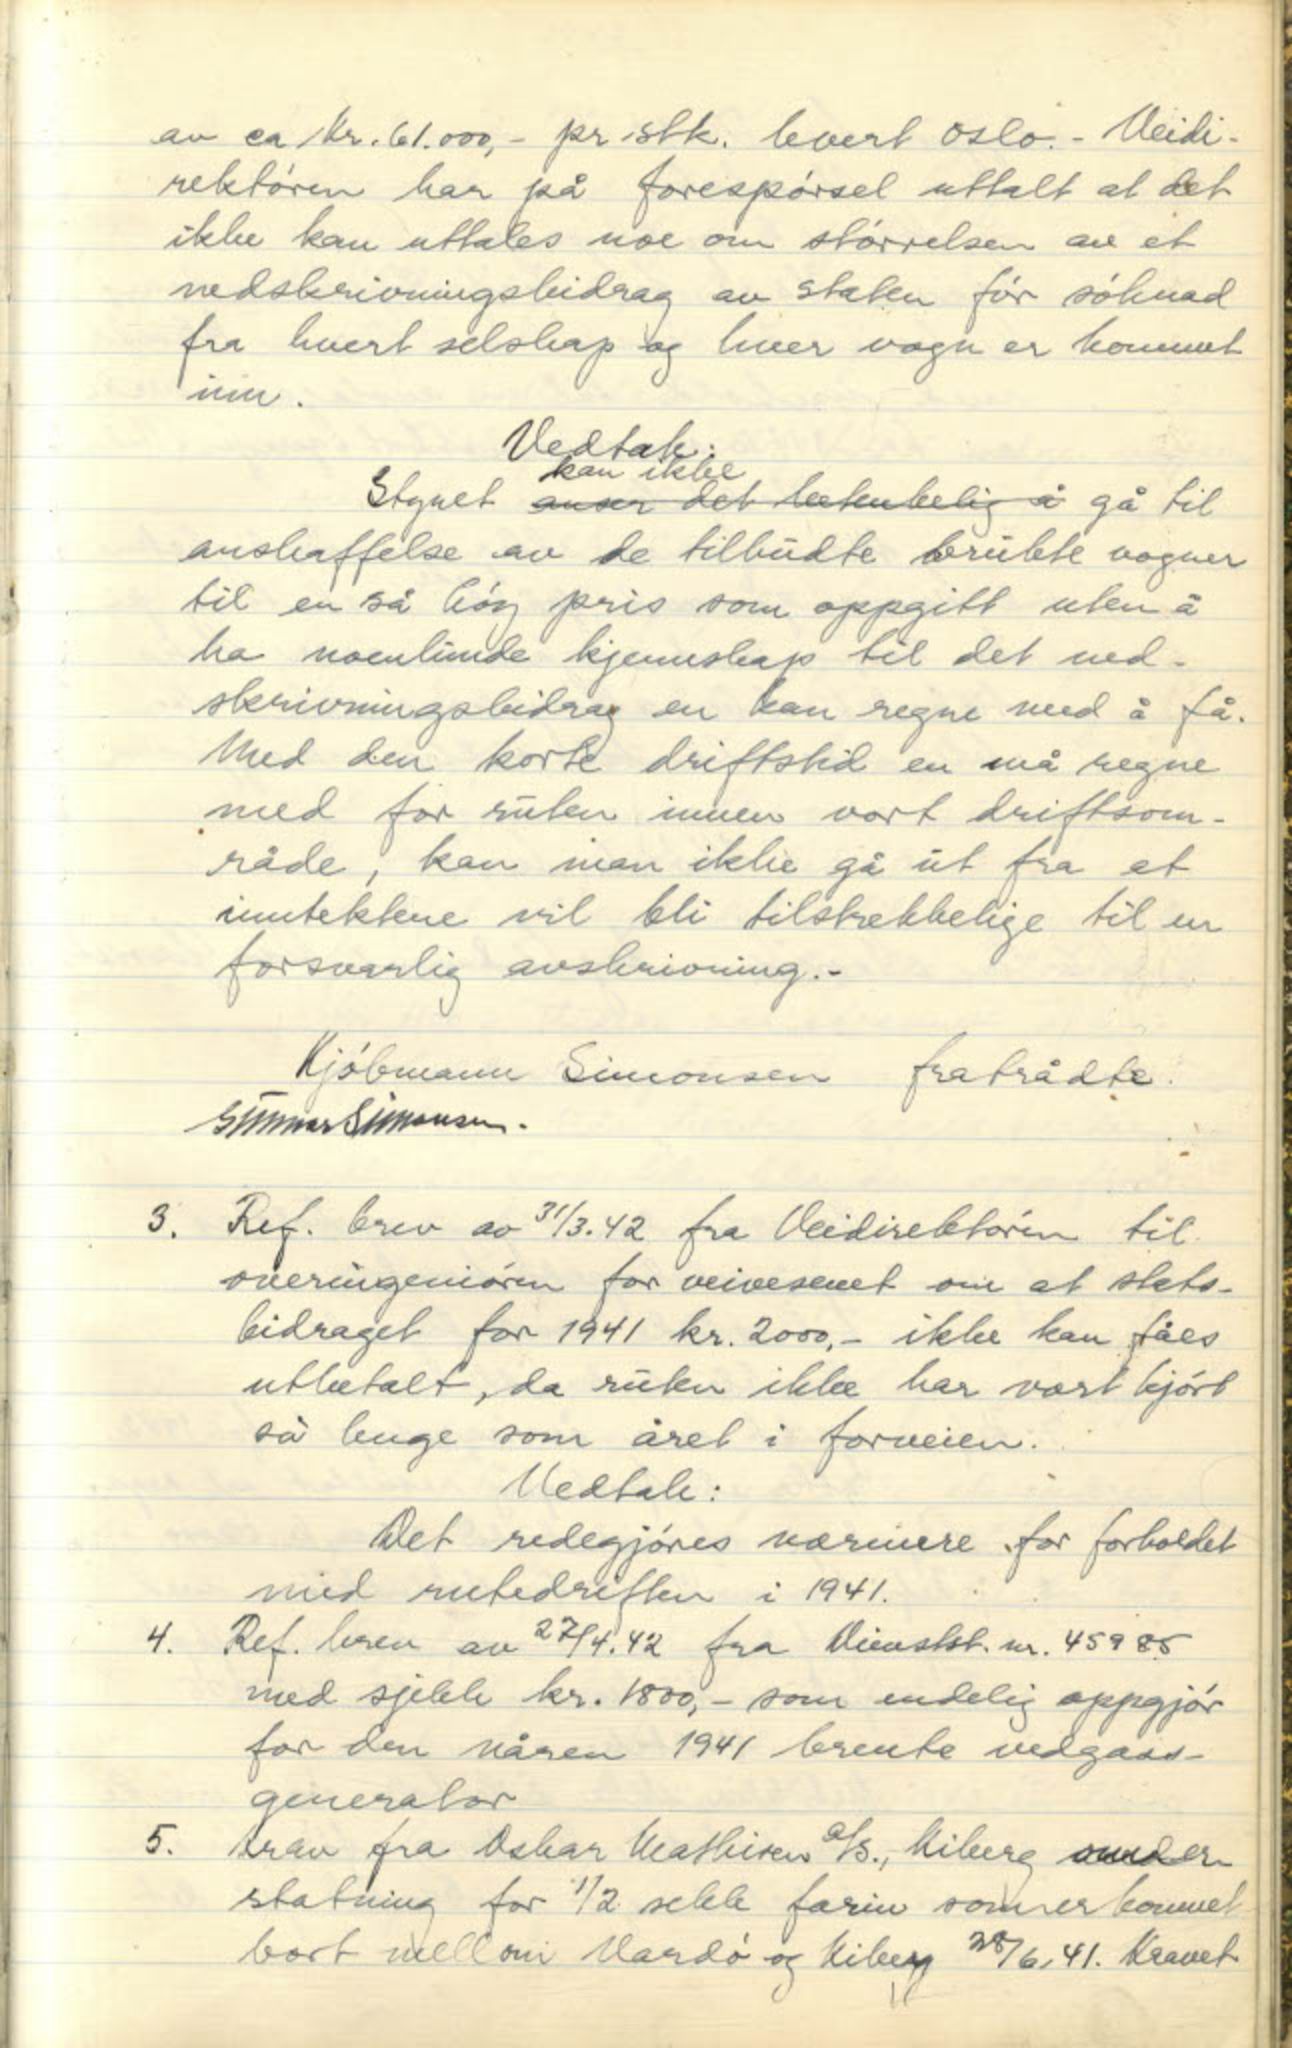 av ca kr. 61.000,- pr stk. levert Oslo. - Veidi-
rektóren har på forespórsel uttalt at det
ikke kan uttales noe om stórrelsen av et
nedskrivningsbidrag av staten fór sóknad
fra hvert selskap og hver vogn er kommet
inn.
Vedtak:
kan ikke
Styret anser det betenkelig å gå til
anskaffelse av de tilbudte brukte vogner
til en så hóg pris som oppgitt uten å
ha noenlunde kjennskap til det ned-
skrivningsbidrag en kan regne med å få.
Med den korte driftstid en må regne
med for ruten innen vort driftsom-
råde, kan man ikke gå ut fra at
inntektene vil bli tilstrekkelige til en
forsvarlig avskrivning.-
Kjóbmann Simonsen fratrådte.
Gunnar Simonsen.
3. Ref. brev av 31/3.42 fra Veidirektóren til
overingenióren for veivesenet om at stats-
bidraget for 1941 kr. 2000,- ikke kan fåes
utbetalt, da ruten ikke har vært kjórt
så lenge som året i forveien.
Vedtak:
Det redegjóres nærmere for forholdet
med rutedriften i 1941.
4. Ref. brev av 27/4.42 fra Dienstst. nr. 45985
med sjekk kr. 1800,- som endelig oppgjór
for den våren 1941 brente vedgass-
generator
5. Krav fra Oskar Mathisen a/s., Kiberg om er
statning for 1/2 sekk farin som er kommet
bort mellom Vardó og Kiberg 28/6.41. Kravet